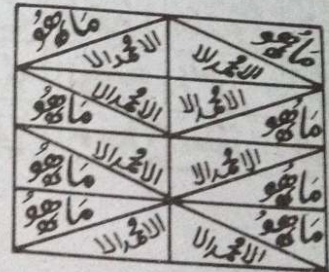 مَا هُو الا محمد الا الا محمد الا مَا هُو
مَا هُو الا محمد الا الا محمد الا مَا هُو
مَا هُو الا محمد الا الا محمد الا مَا هُو
مَا هُو الا محمد الا الا محمد الا مَا هُو